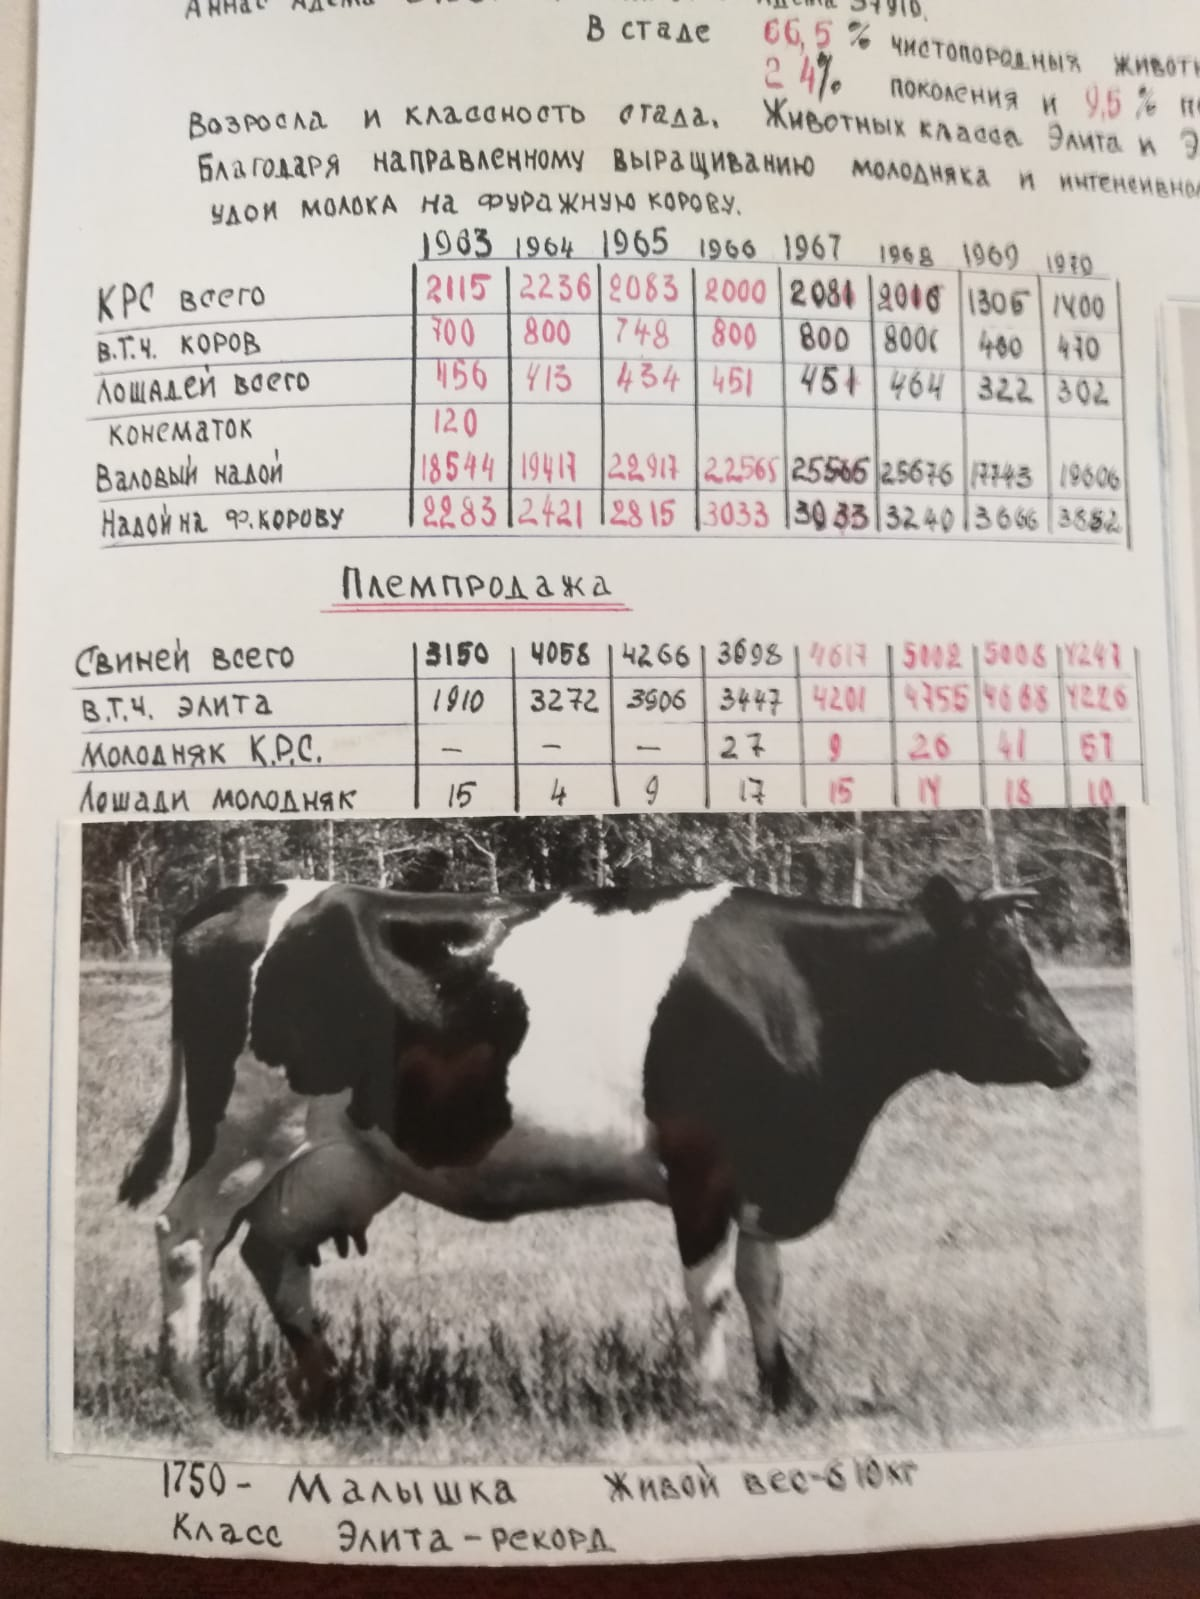 Аннас Адема
В стаде 66,5% чистопородныя
24% поколения и 9,5%
Возросла и классность стада. Животных класса Элита и
Благодаря направленному выращиванию молодняка и
удои молока на фуражную корову.
1963 1964 1965 1966 1967 1968 1969 1970
КРС всего 2115 2236 2083 2000 2081 2016 1306 1400
в.т.ч. коров 700 800 748 800 800 800 470
Лошадей всего 456 413 434 451 451 464 322 302
конематок 120
Валовый надой 18544 19417 22917 22565 25676 17743 19606
Надой на ф.корову 2283 2421 2815 3033 3033 3240 3666
Племпродажа
Свиней всего 3150 4058 4266 3698 4617 5002 5008 4247
в.т.ч. элита 1910 3272 3906 3447 4201 4755 4668 4226
Молодняк К.Р.С. – – – 27 9 26 41
Лошади молодняк 15 4 9 17 15 14 18 10
1750 - Малышка Живой вес-610кг
Класс Элита-рекорд